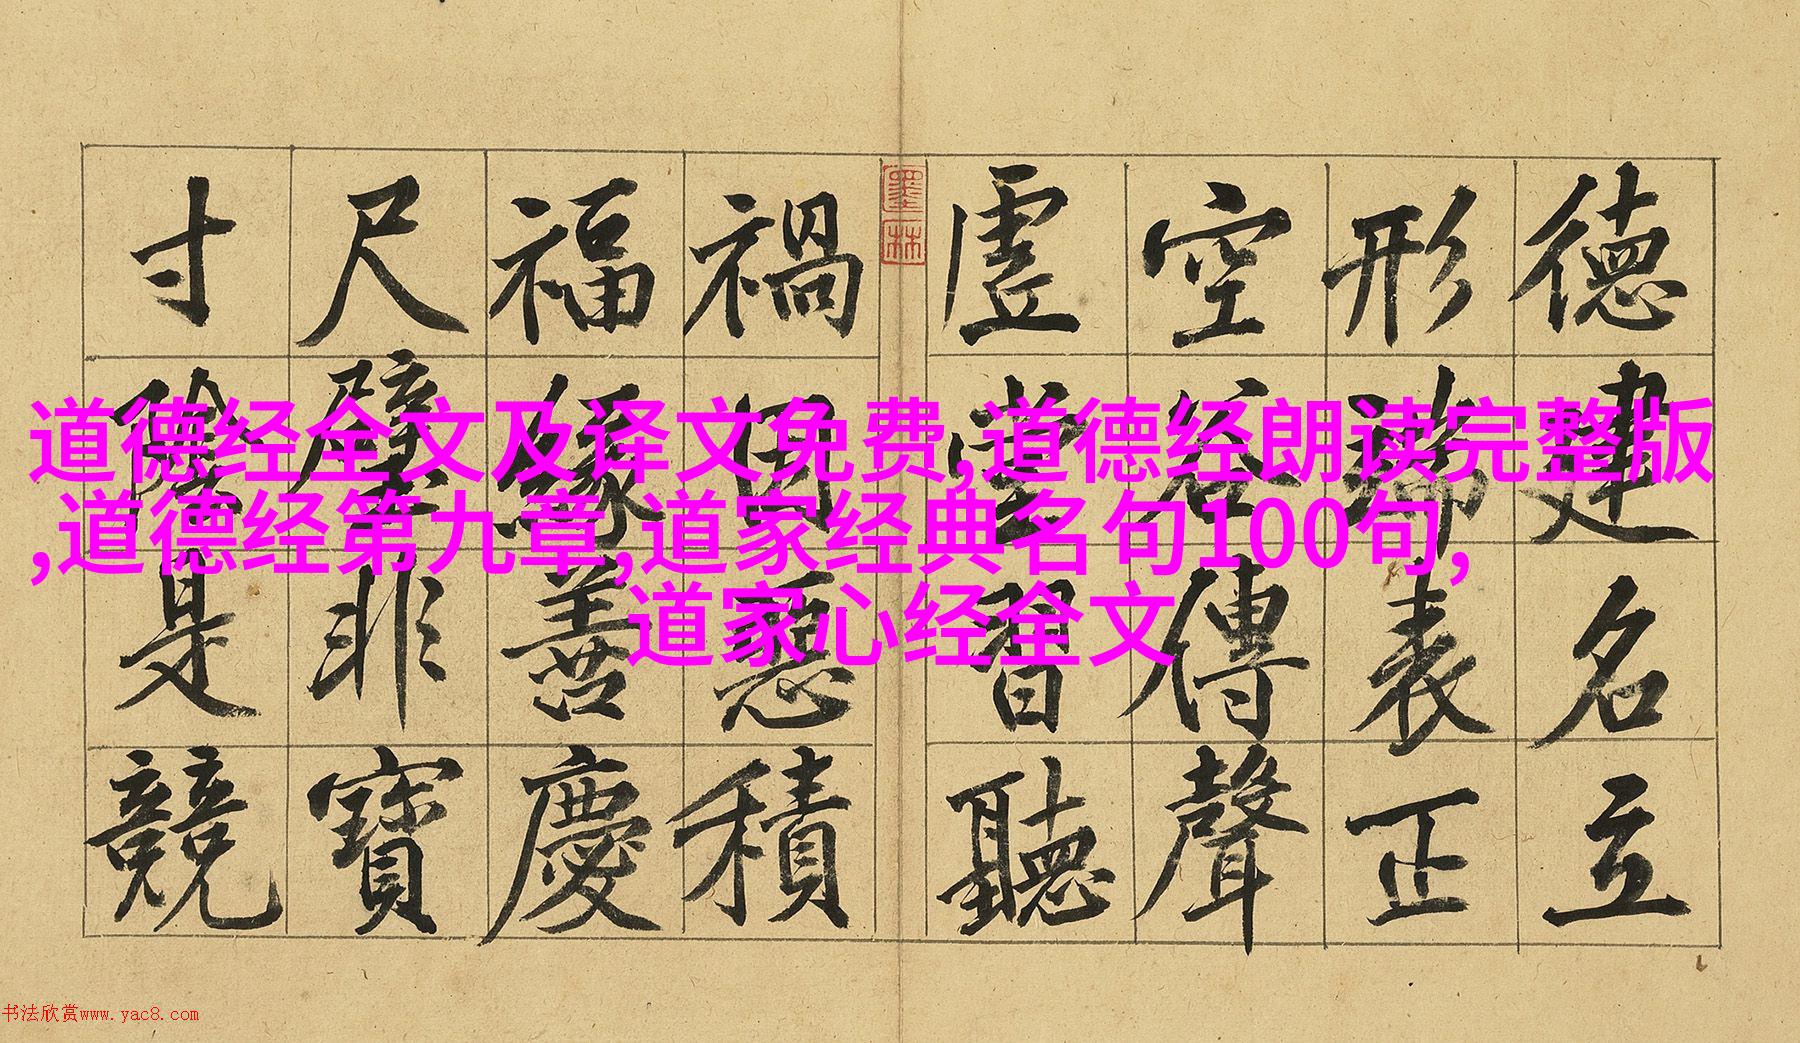 德建名立
形端表正
空谷傳聲
虛堂習聽
禍因惡積
福緣善慶
尺璧非寶
寸陰是競
墨林
道德经全文及译文免费,道德经朗读完整版
,道德经第九章,道家经典名句100句,
道家心经全文
书法欣赏www.yac8.com